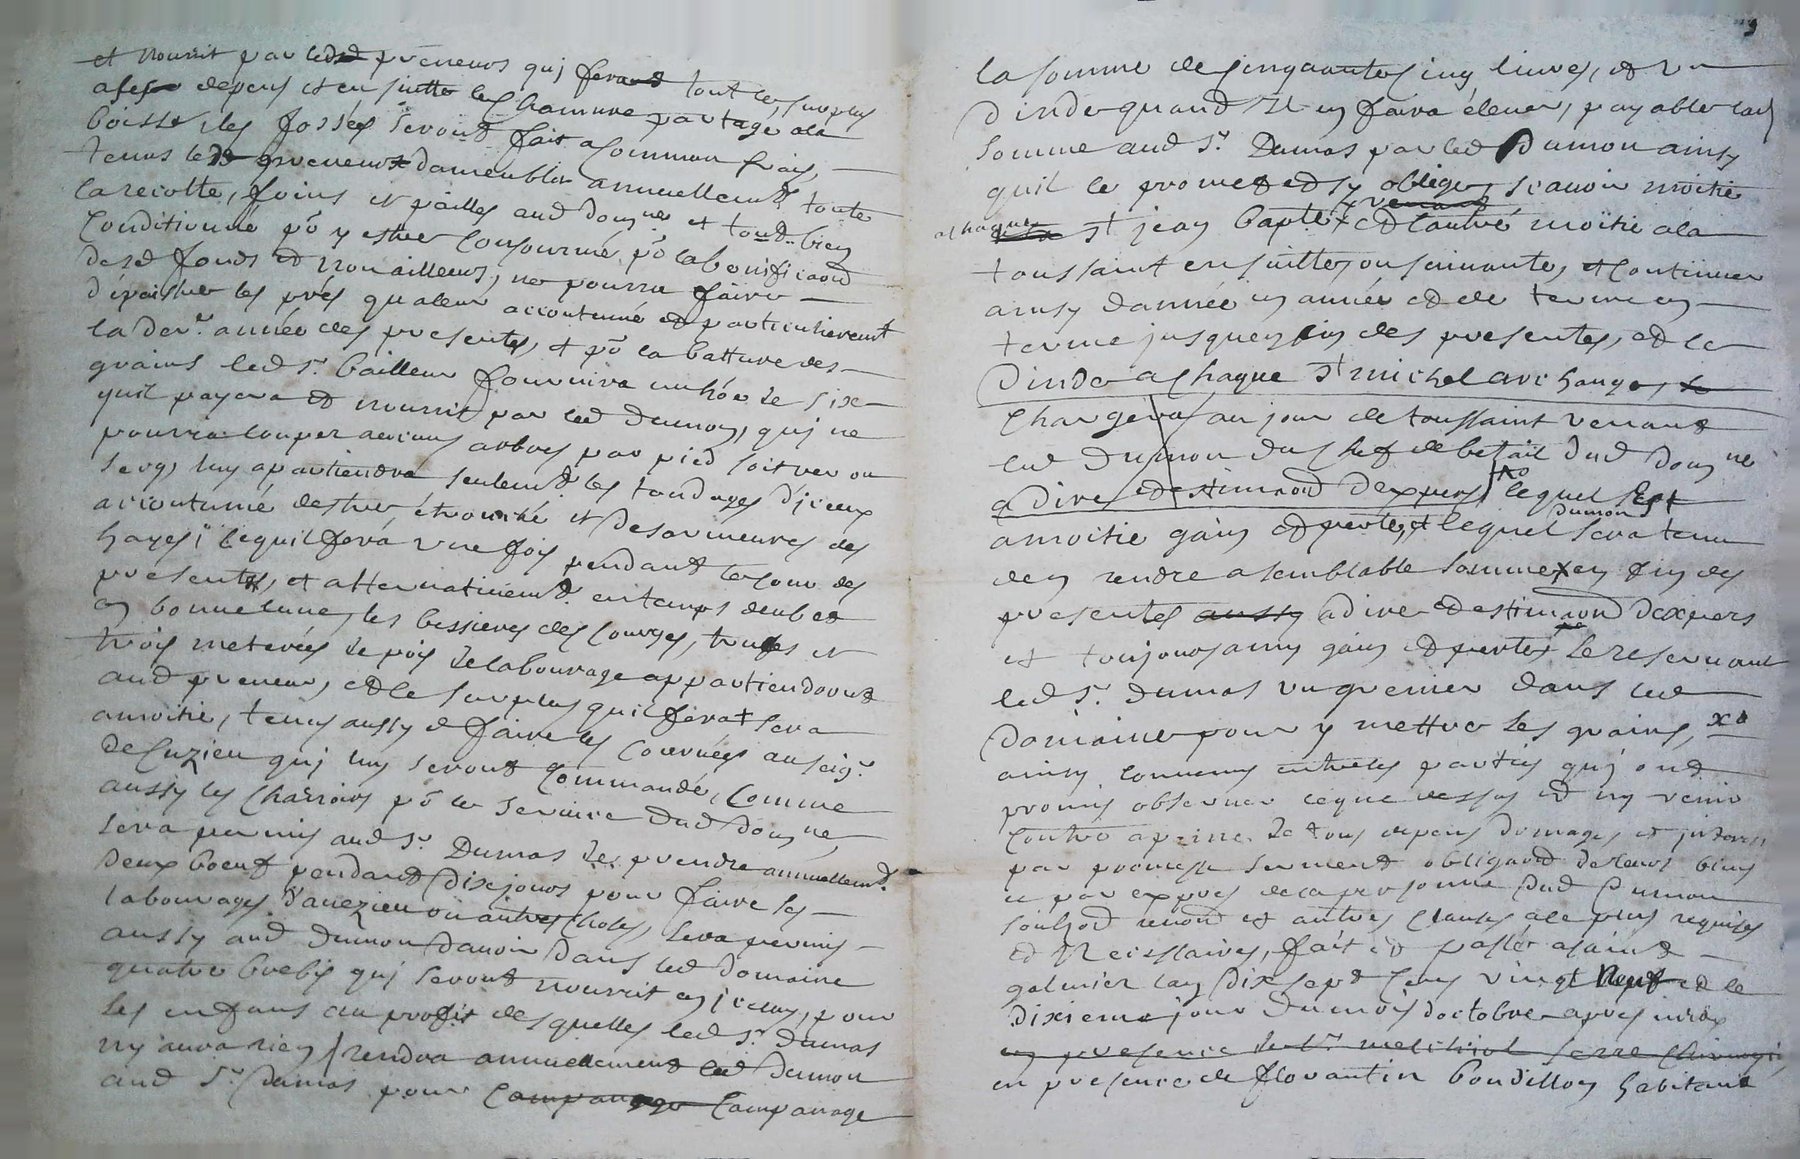 et nourrit par led preneurs qui fera tout le surplus
a ses depens et en suitte le chamvre partage a la
boisse, les fossés seront fait a commun frais,
tenus led preneurs d'ameubler annuellemt toute
la recolte, foins et pailles aud domne et tout bien
conditionné po y estre consommé po la bonificaon
desd fonds et non ailleurs, ne pourra faire
dépaistre les prés qu'a leur accoutumé et particulierement
la dere année des presentes, et po la batture des
grains led sr. bailleur fournira un hôe
qu'il payera et nourrit par led dumon, qui ne
pourra couper aucuns arbres par pied soit ver ou
secq, luy apartiendra seulemt les tondages d'iceux
accoutumé destre, et des ormeures des
hayes, lequil fera une fois pendant le cour des
presentes, et alternativemt en temps deub et
en bonne lune, les bessieres des courges, truffes et
trois meterées de pois de labourage appartiendront
aud preneur, et le surplus qu'il fera sera
a moitié, tenus aussy de faire les courvées au seigr.
de Cuzieu qui luy seront commandé, comme
aussy les charrois po le service dud domne,
sera permis aud sr. Dumas de prendre annuellemt.
deux boeuf pendant dix jours pour faire ses
labourages d'anezieu ou autres choses, sera permis
aussy aud dumon d'avoir dans led domaine
quatre brebis qui seront nourrit en iceluy, pour
ses enfans au profit desquelles led sr. dumas
ny aura rien, rendra annuellement led dumon
aud sr. dumas pour campanage campanage
9
la somme de cinquante cinq livres, et un
dinde quand il en faira élever, payable lad
somme aud sr. Dumas par led Dumon ainsy
quil le promet et sy oblige, scavoir moitié
a chaque st jean bapte x et l'autre moitié a la
x venant
toussaint en suitte ou suivante, et continuer
ainsy d'année en année et de terme en
terme jusques fin des presentes, et le
dinde a chaque st michel archange, le
chargera au jour de toussaint venant
led Dumon du chef de betail dud domne
a dire et estimaon d'expers lequel est
a moitié gain et pertes, et lequel dumon sera tenu
den rendre a semblable somme x en fin des
presentes aussy a dire et estimaon d'expers
et toujours a my gain et pertes se reservant
led sr. dumas un grenier dans led
domaine pour y mettre ses grains, x
ainsy convenus entre les parties qui ont
promis observer ce que dessus et ny venir
contre a peine de tous depens domages et interets
par promesse serment obligaon de leurs biens
et par expres de la personne dud Dumon
soubzon renon et autres clauses a le plus requises
et necessaires, fait et passé a saint
galmier l'an dix sept cens vingt neuf et le
dixieme jour du mois doctobre apres midy
en presence de sr. melchiol serre chirurgien
en presence de florantin boudillon habitant